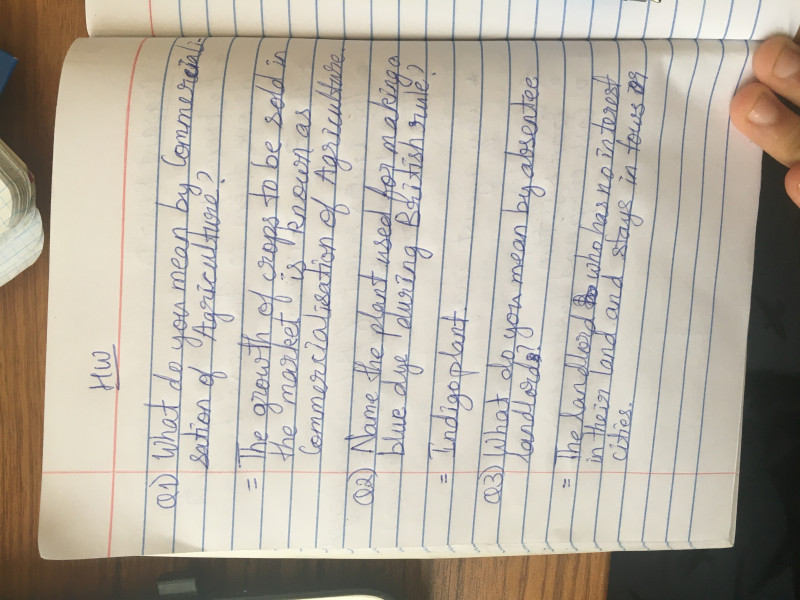 HW
Q1) What do you mean by Commerciali-
sation of Agriculture?
= The growth of crops to be sold in
the market is known as
Commercialisation of Agriculture.
Q2) Name the plant used for making a
blue dye during British rule?
= Indigo plant.
Q3) What do you mean by absentee
landlords?
= The landlord who has no interest
in their land and stays in tows or
cities.